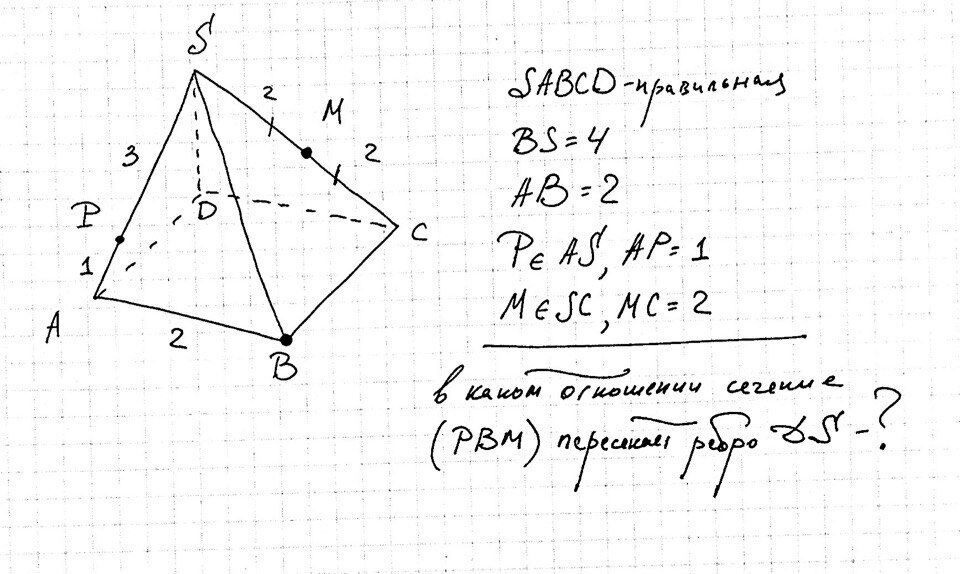 S
2
M
2
3
P
D
C
1
A
2
B
SABCD-правильная
BS=4
AB=2
P∈AS, AP=1
M∈SC, MC=2
в каком отношении сечение
(PBM) пересекает ребро DS-?